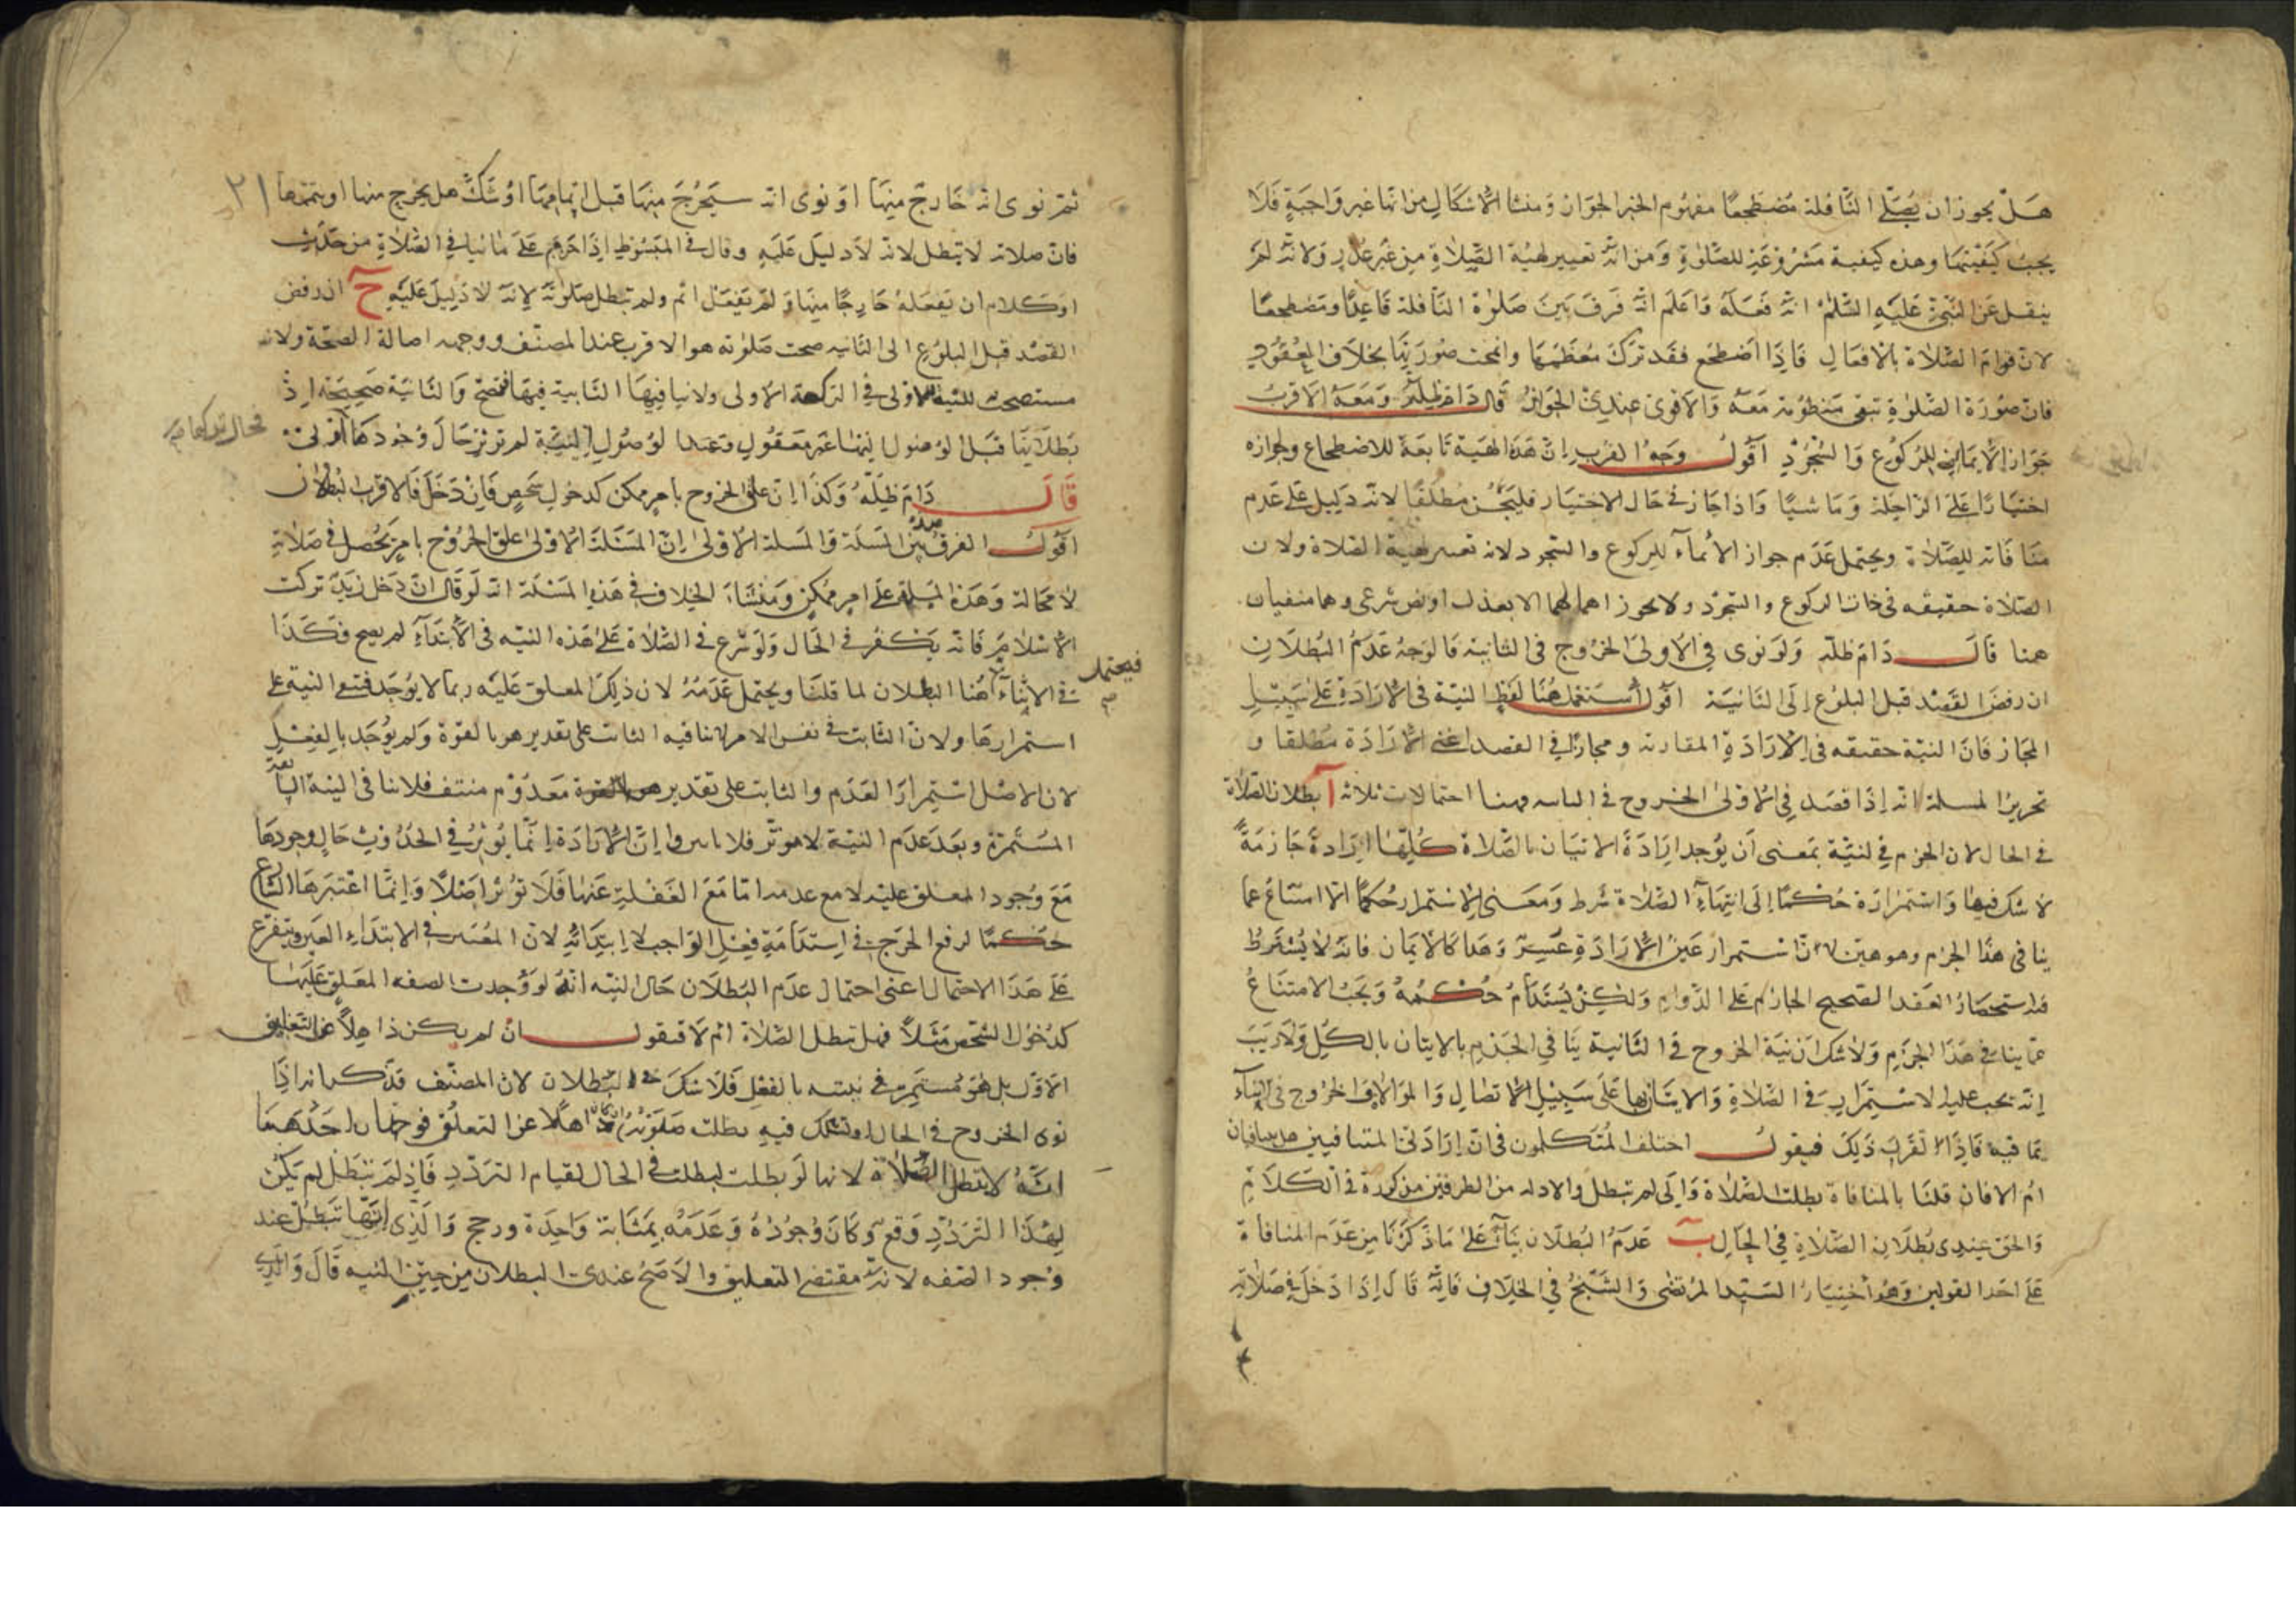 هل يجوز ان يصلي النافلة مضطجعا مفهوم الخبر الجواز ومنشا الاشكال من انها غير واجبة فلا
يجب كيفيتها وهذه كيفية مشروعة للصلوة ومن انه تغيير لهيئة الصلاة من غير عذر ولانه لم
ينقل عن النبي عليه السلم انه فعله واعلم انه فرق بين صلوة النافلة قاعدا ومضطجعا
لان قوام الصلاة بالافعال فاذا اضطجع فقد ترك معظمها وانمحت صورتها بخلاف القعود
فان صورة الصلوة تبقى منظومة معه والاقوى عندي الجواز قال دام ظله ومعه الاقرب
جواز الايماء للركوع والسجود اقول وجه القرب ان هذه الهيئة تابعة للاضطجاع وجوازه
اختيارا على الراحلة وماشيا واذا جاز في حال الاختيار فليجز مطلقا لانه دليل على عدم
منافاته للصلاة ويحتمل عدم جواز الايماء للركوع والسجود لانه تغيير لهيئة الصلاة ولان
الصلاة حقيقه في ذات الركوع والسجود ولا يجوز اهمالهما الا بعذر او نص شرعي وهما منفيان
همنا قال دام ظله ولو نوى في الاولى الخروج في الثانية فالوجه عدم البطلان
ان رفض القصد قبل البلوغ الى الثانية اقول استعمل هنا لفظ النية في الارادة على سبيل
المجاز فان النية حقيقه في الارادة المقارنه ومجازا في القصد اعني الارادة مطلقا و
تحرير المسلة انه اذا قصد في الاولى الخروج في الثانيه فهنا احتمالات ثلاثه آ بطلان الصلاة
في الحال لان الجزم في النية بمعنى ان يوجد ارادة الاتيان بالصلاة كلها ارادة جازمة
لا شك فيها واستمراره حكما الى انتهاء الصلاة شرط ومعنى الاستمرار حكما الامتناع عما
ينافي هذا الجزم وهو هين لان استمرار عين الارادة عسر وهذا كالايمان فانه لا يشترط
فيه استحضار العقد الصحيح الجازم على الدوام ولكن يستدام حكمه ويجب الامتناع
عما ينافي هذا الجزم ولا شك ان نية الخروج في الثانية ينافي الجزم بالاتيان بالكل ولا ريب
انه يجب عليه الاستمرار في الصلاة والاتيان بها على سبيل الاتصال والموالاة والخروج في اثناء
ما فيه فاذا تقرر ذلك فنقول اختلف المتكلمون في ان ارادتي المتنافيين هل يتنافيان
ام لا فان قلنا بالمنافاة بطلت الصلاة والا لم تبطل والادله من الطرفين مذكورة في الكلام
والحق عندي بطلان الصلاة في الحال ب عدم البطلان بناء على ما ذكرنا من عدم المنافاة
على احد القولين وهو اختيار السيد المرتضى والشيخ في الخلاف فانه قال اذا دخل في صلاته
ثم نوى انه خارج منها او نوى انه سيخرج منها قبل اتمامها او شك هل يخرج منها او يتمها
٢١
فان صلاته لا تبطل لانه لا دليل عليه وقال في المبسوط اذا عزم على ما ينافي الصلاة من حدث
او كلام ان يفعله خارجا منها ولم يفعل اثم ولم تبطل صلوته لانه لا دليل عليه ح ان رفض
القصد قبل البلوغ الى الثانيه صحت صلوته هو الاقرب عند المصنف ووجهه اصالة الصحة ولانه
مستصحب للنية الاولى في الركعة الاولى ولا ينافيها الثانية فيها فتصح والثانية صحيحة اذ
بطلانها قبل الوصول اليها غير معقول وعند الوصول النية لم تؤثر حال وجودها اولى
قال دام ظله وكذا ان علق الخروج بامر ممكن كدخول شخص فان دخل فالاقرب البطلان
اقول الفرق بين هذه المسلة والمسلة الاولى ان المسئلة الاولى علق الخروج بامر يحصل في صلاته
لا محالة وهذه المسلة على امر ممكن ومنشأ الخلاف في هذه المسئلة انه لو قال ان دخل زيد تركت
الاسلام فانه يكفر في الحال ولو شرع في الصلاة على هذه النيه في الابتداء لم يصح فكذا
في الاثناء فيحتمل هنا البطلان لما قلنا ويحتمل عدمه لان ذلك المعلق عليه ربما لا يوجد فتبقى النية على
استمرارها ولان الثابت في نفس الامر لا ينافيه الثابت على تقدير هو بالقوة ولم يوجد بالفعل
لان الاصل استمرار العدم والثابت على تقدير معدوم منتف فلا ينافي النية الباقية
المستمرة وبعد عدم النية لا مؤثر فلا تاثير ان الارادة انما يؤثر في الحدوث حال وجودها
مع وجود المعلق عليه لا مع عدمه اما مع الغفلة عنها فلا تؤثر اصلا وانما اعتبرها الشارع
حكما لرفع الحرج في استدامة فعل الواجب لا ابتدائه لان المعتبر في الابتداء ويتفرع
على هذا الاحتمال اعني احتمال عدم البطلان حال النيه انه لو وجدت الصفه المعلق عليها
كدخول الشخص مثلا فهل تبطل الصلاة ام لا فنقول ان لم يكن ذاهلا عن التعليق
الاول بل هو مستمر في نيته بالفعل فلا شك في البطلان لان المصنف قد ذكر انه اذا
نوى الخروج في الحال او شك فيه بطلت صلوته وان كان ذاهلا عن التعلق فوجهان احدهما
انه لا تبطل الصلاة لانها لو بطلت لبطلت في الحال لقيام التردد فاذا لم تبطل لم يكن
لهذا التردد وقع وكان وجوده وعدمه بمثابة واحدة ورجح والذي انها تبطل عند
وجود الصفه لانه مقتضى التعليق والاصح عندي البطلان من حين النيه قال والدي